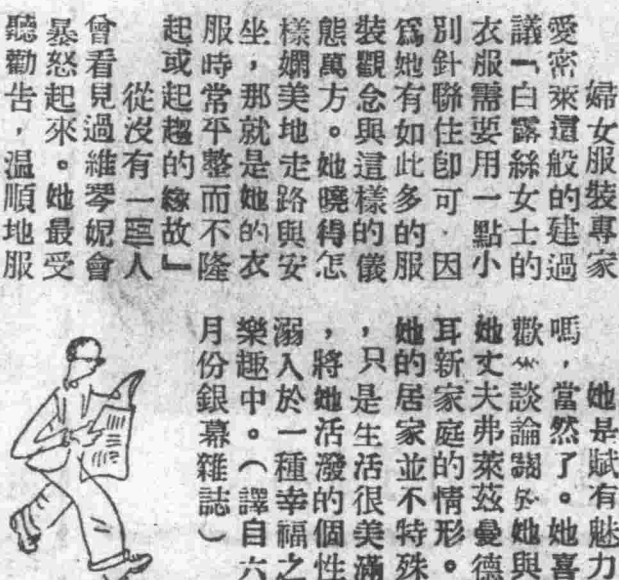 婦女服裝專家
愛密萊這般的建過
議「白露絲女士的
衣服需要用一點小
別針聯住卽可．因
爲她有如此多的服
裝觀念與這樣的儀
態萬方。她曉得怎
樣嫻美地走路與安
坐，那就是她的衣
服時常平整而不隆
起或起趨的緣故」
從沒有一人
曾看見過維琴妮會
暴怒起來。她最受
聽勸告，温順地服
她是賦有魅力
嗎，當然了。她喜
歡談論她與
她丈夫弗萊茲曼德
耳新家庭的情形。
她的居家並不特殊
，只是生活很美滿
，將她活潑的個性
溺入於一種幸福之
樂趣中。（譯自六
月份銀幕雜誌）